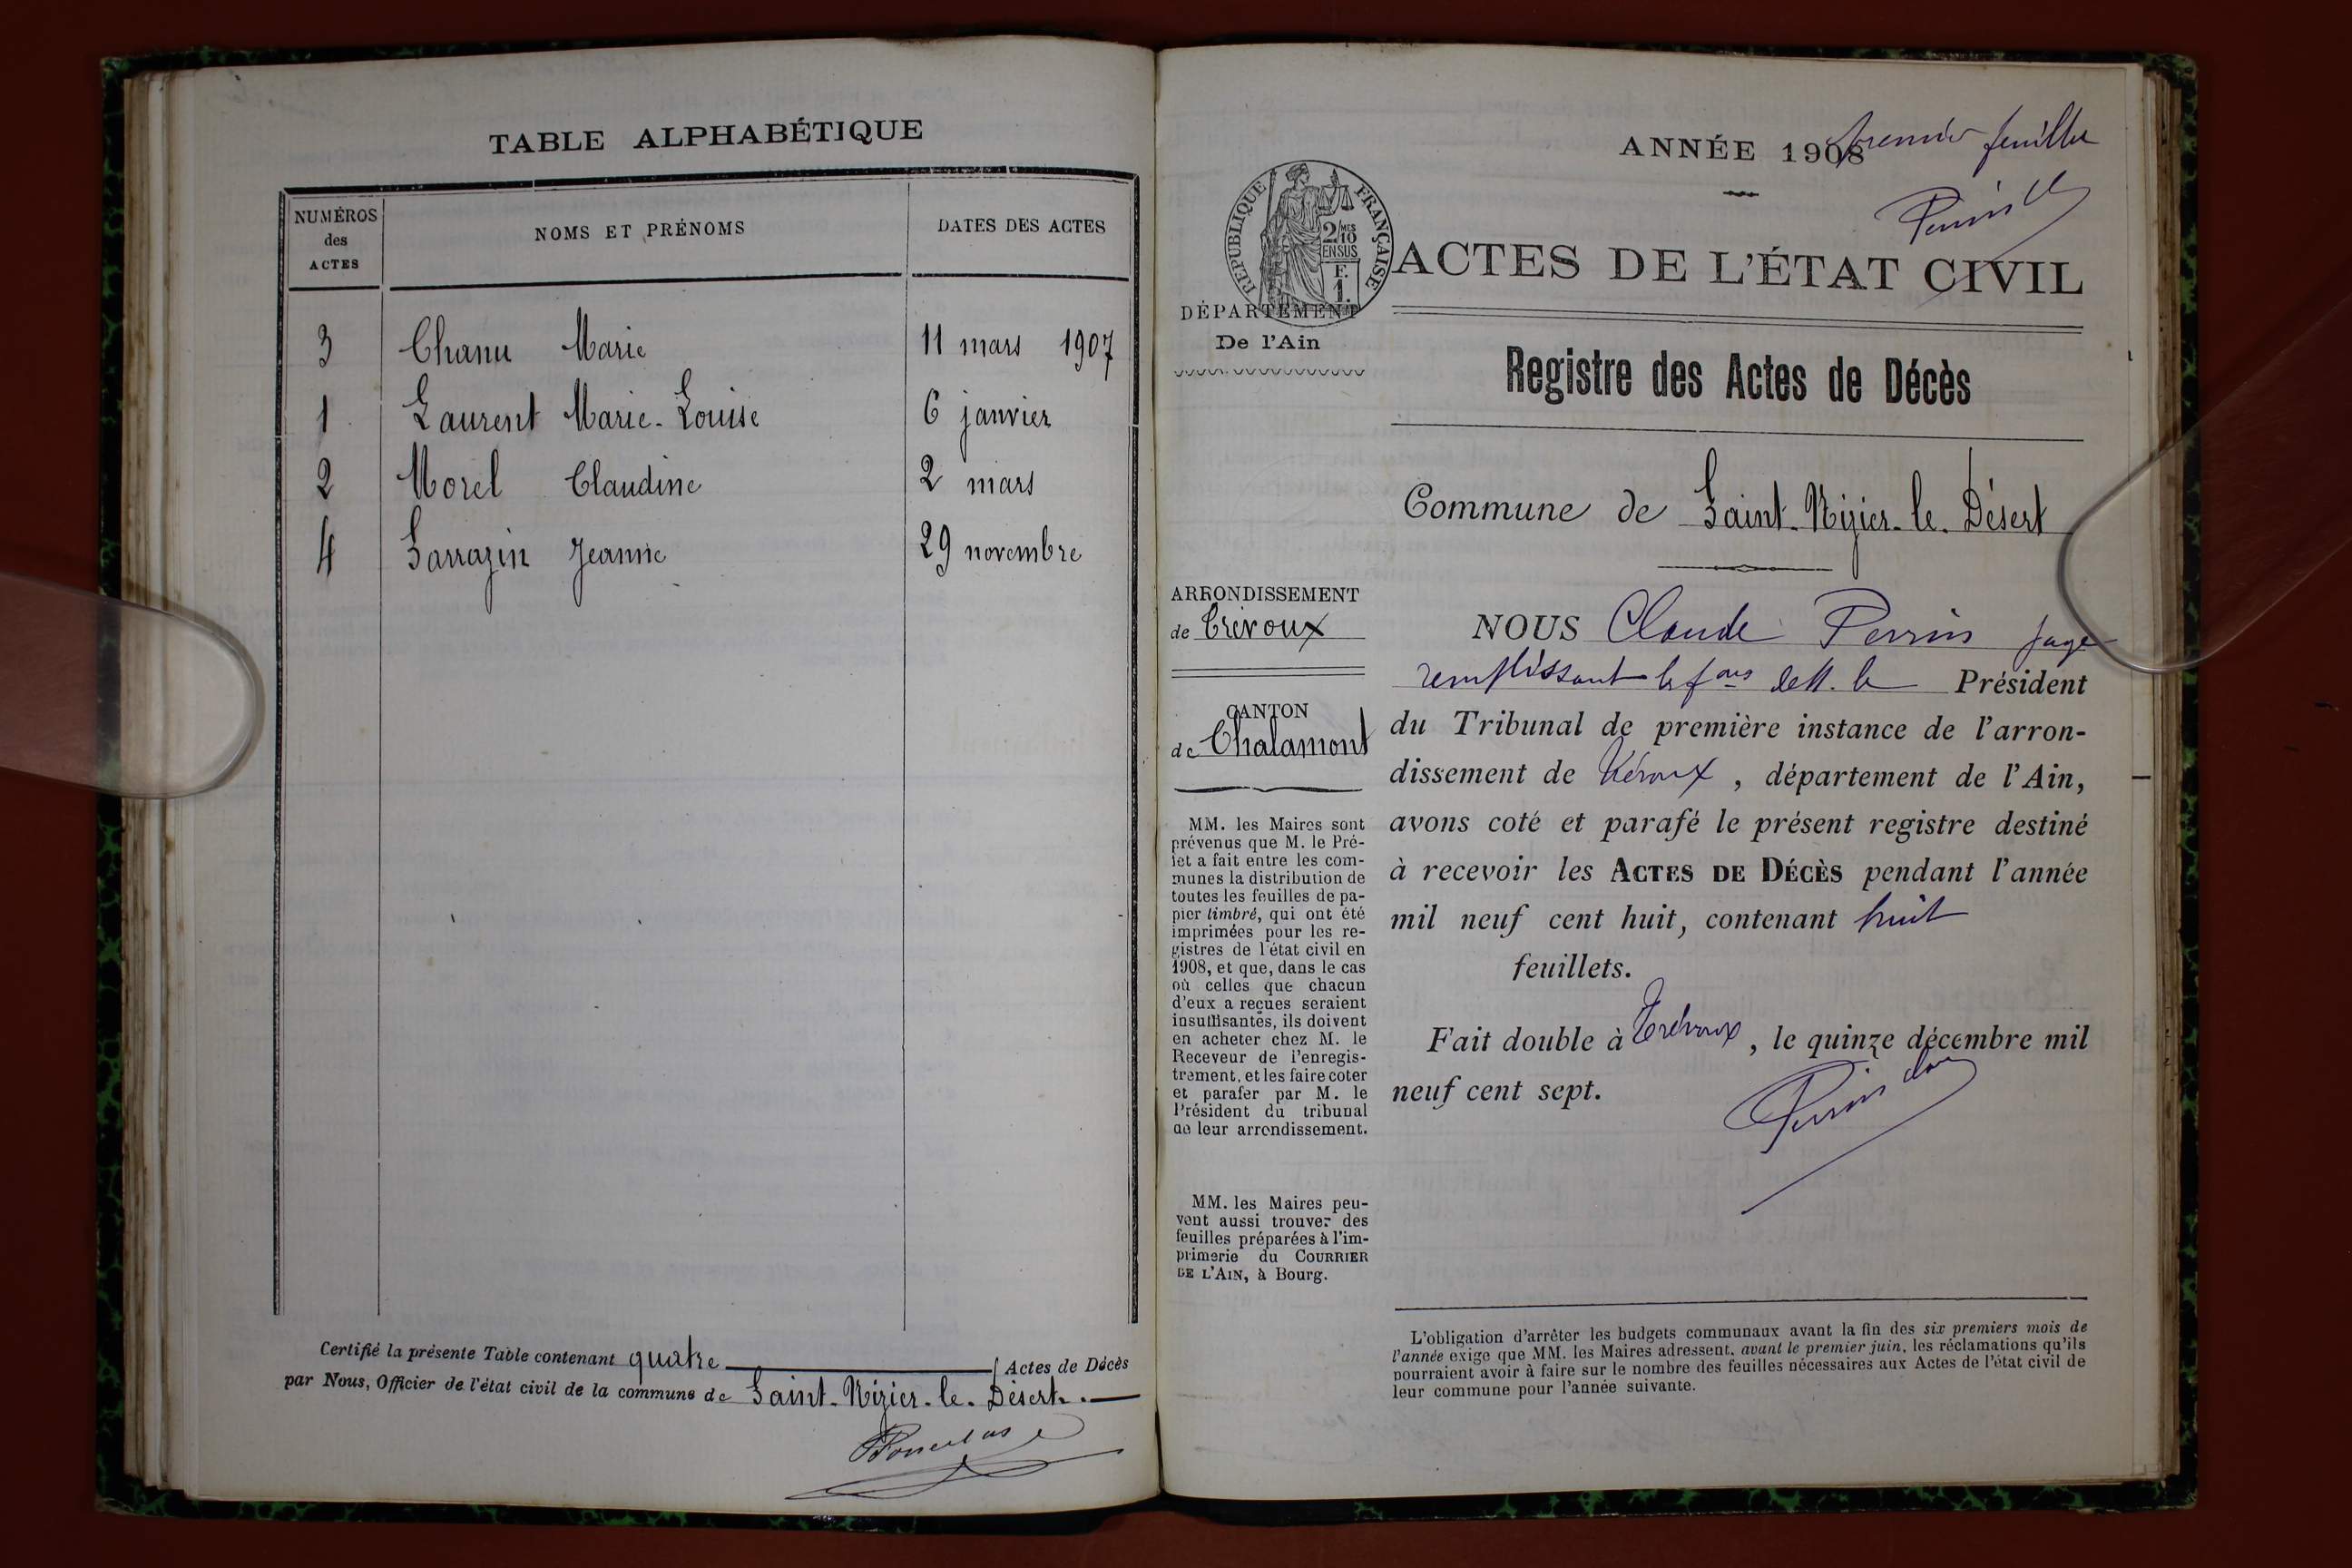 TABLE ALPHABÉTIQUE
NUMÉROS
des
ACTES
NOMS ET PRÉNOMS
DATES DES ACTES
3 Chanu Marie 11 mars 1907
1 Laurent Marie-Louise 6 janvier
2 Morel Claudine 2 mars
4 Sarrazin Jeanne 29 novembre
Certifié la présente Table contenant quatre Actes de Décès
par Nous, Officier de l'état civil de la commune de Saint-Nizier-le-Désert.
premier feuillet
ANNÉE 1908
RÉPUBLIQUE FRANÇAISE
2/10 MES
EN SUS
F.
1.
ACTES DE L'ÉTAT CIVIL
DÉPARTEMENT
De l'Ain
Registre des Actes de Décès
Commune de Saint-Nizier-le-Désert
ARRONDISSEMENT
de Trévoux
CANTON
de Chalamont
MM. les Maires sont
prévenus que M. le Pré-
fet a fait entre les com-
munes la distribution de
toutes les feuilles de pa-
pier timbré, qui ont été
imprimées pour les re-
gistres de l'état civil en
1908, et que, dans le cas
où celles que chacun
d'eux a reçues seraient
insuffisantes, ils doivent
en acheter chez M. le
Receveur de l'enregis-
trement, et les faire coter
et parafer par M. le
Président du tribunal
de leur arrondissement.
MM. les Maires peu-
vent aussi trouver des
feuilles préparées à l'im-
primerie du COURRIER
DE L'AIN, à Bourg.
NOUS Claude Perrin juge
remplissant les fons de M. le Président
du Tribunal de première instance de l'arron-
dissement de Trévoux, département de l'Ain,
avons coté et parafé le présent registre destiné
à recevoir les ACTES DE DÉCÈS pendant l'année
mil neuf cent huit, contenant huit
feuillets.
Fait double à Trévoux, le quinze décembre mil
neuf cent sept.
L'obligation d'arrêter les budgets communaux avant la fin des six premiers mois de
l'année exige que MM. les Maires adressent, avant le premier juin, les réclamations qu'ils
pourraient avoir à faire sur le nombre des feuilles nécessaires aux Actes de l'état civil de
leur commune pour l'année suivante.